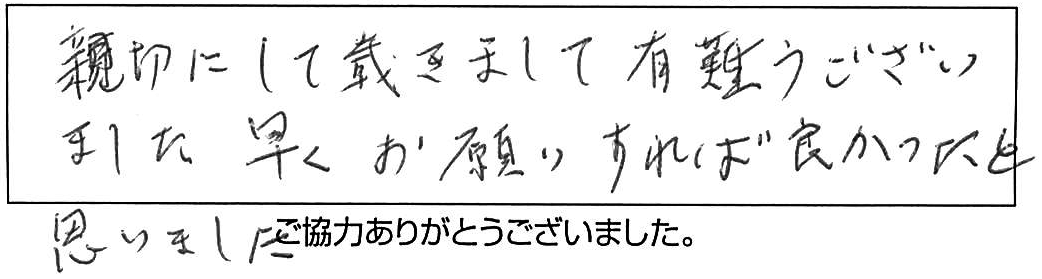 親切にして戴きまして有難うござい
ました 早くお願いすれば良かったと
思いました
ご協力ありがとうございました。